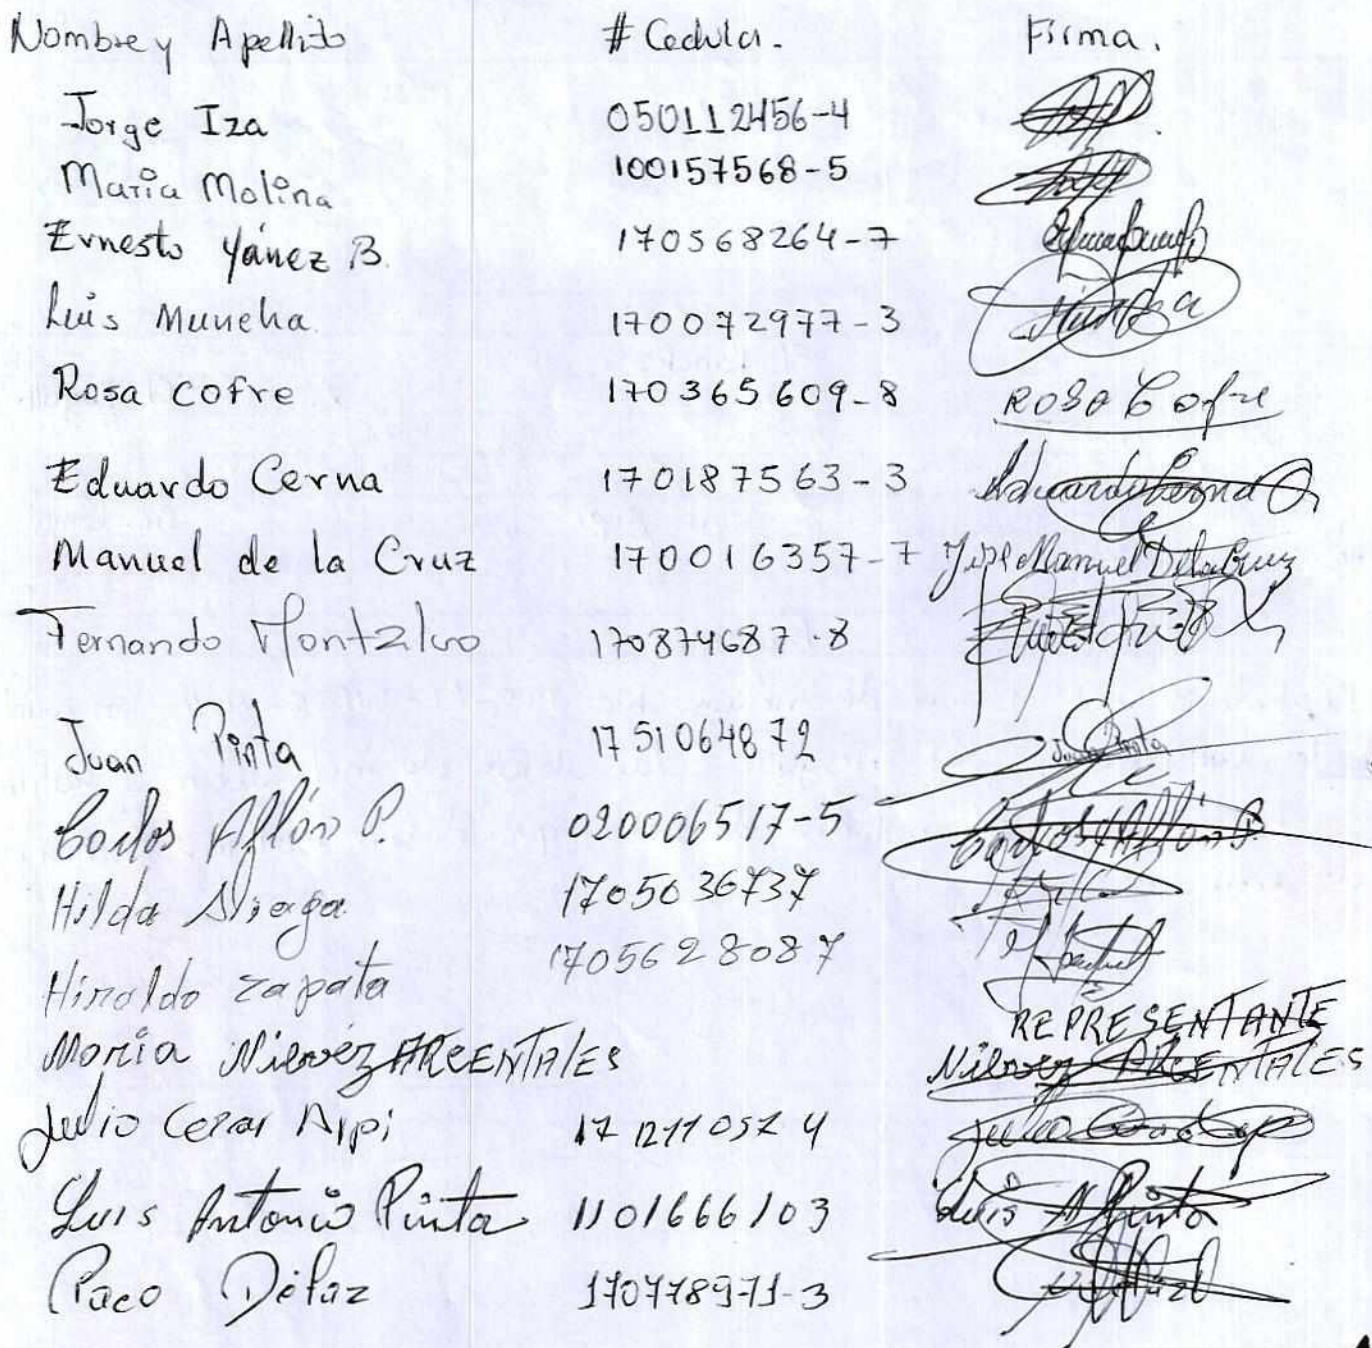 Nombre y Apellido # Cedula. Firma.
Jorge Iza 050112456-4
Maria Molina 100157568-5
Ernesto Yánez B. 170568264-7
Luis Muncha 170072977-3
Rosa Cofre 170365609-8 Rosa Cofre
Eduardo Cerna 170187563-3 Eduardo Cerna
Manuel de la Cruz 170016357-7 Jose Manuel De la Cruz
Fernando Montalvo 170874687-8
Juan Pinta 1751064872 Juan Pinta
Carlos Allán P. 020006517-5 Carlos Allán P.
Hilda 1705036737
Hiraldo Zapata 1705628087
REPRESENTANTE
Maria Nievez ARCENTALES Nievez ARCENTALES
Julio Cezar 4
Luis Antonio Pinta 1101666103 Luis A Pinta
Paco 170778971-3